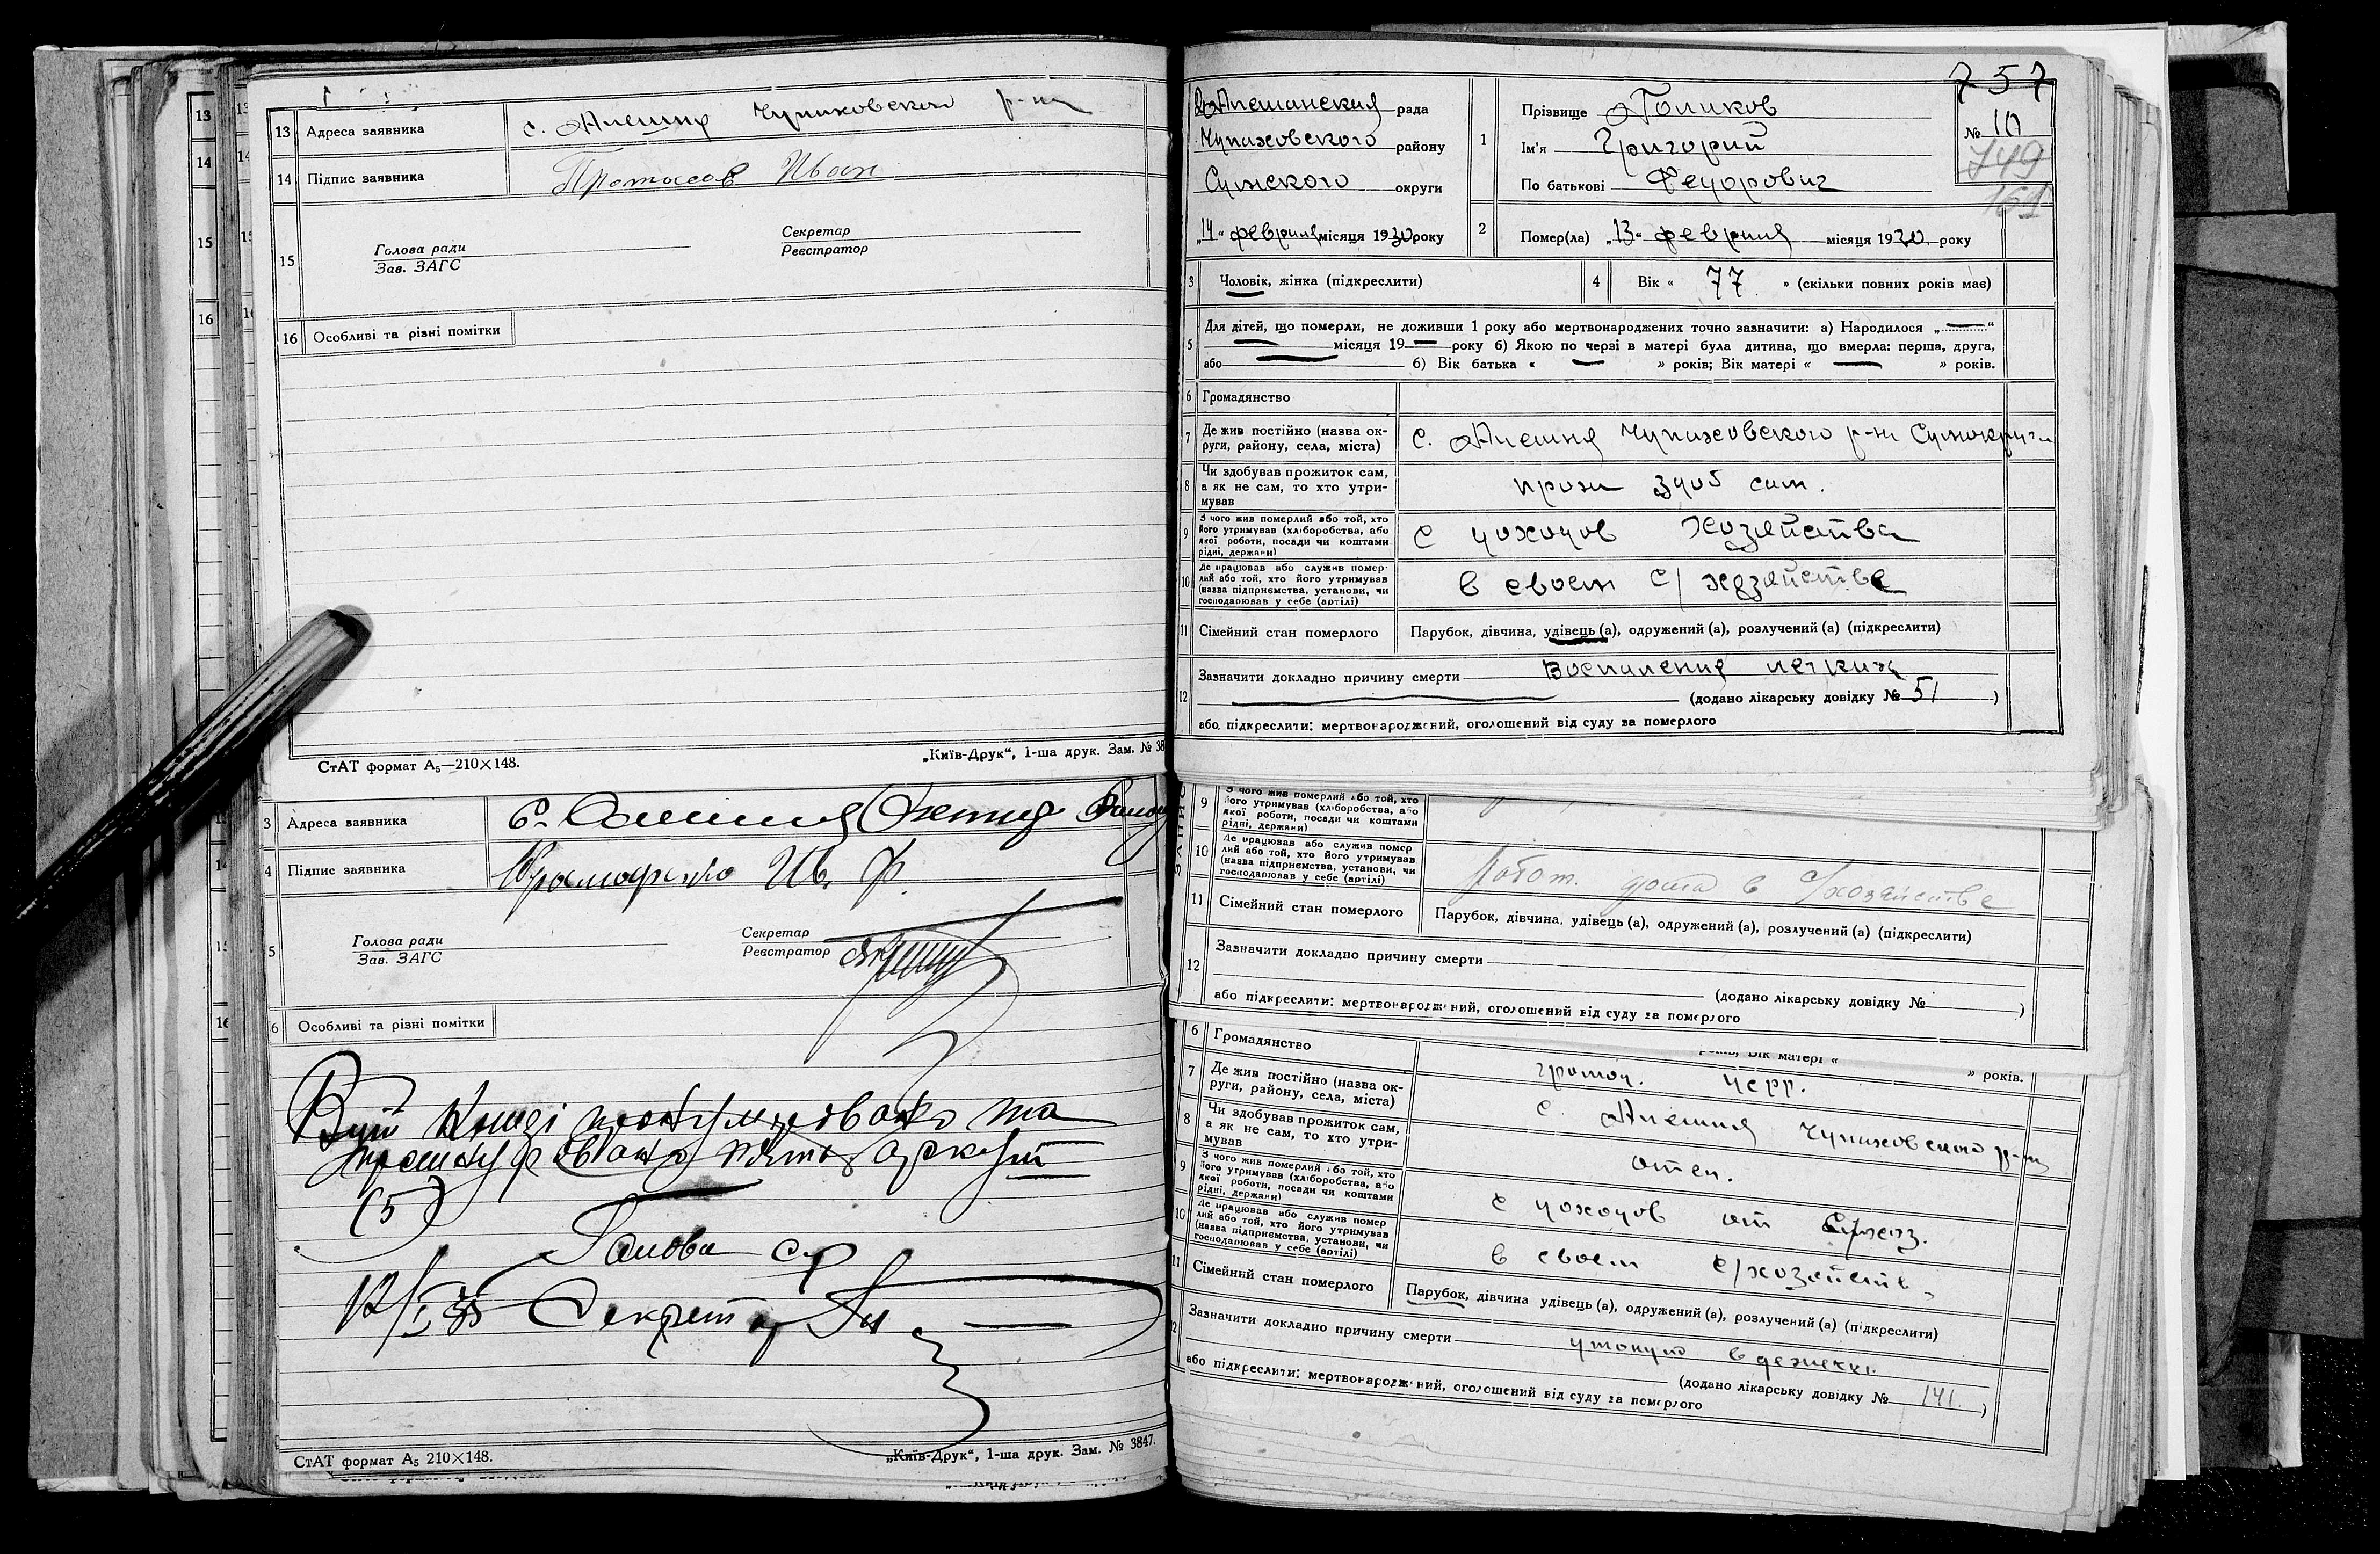 13 Адреса заявника с. Алешня Чупаховского р-на
14 Підпис заявника Протасов Иван
15 Голова ради Секретар
Зав. ЗАГС Реєстратор
16 Особливі та різні помітки
СтАТ формат А₅—210×148. „Київ-Друк“, 1-ша друк. Зам. № 38
3 Адреса заявника с.
4 Підпис заявника Ив. Ф.
5 Голова ради Секретар
Зав. ЗАГС Реєстратор
6 Особливі та різні помітки
та
аркуш
(5)
Голова с/р
Секретар
СтАТ формат А₅ 210×148. „Київ-Друк“, 1-ша друк. Зам. № 3847.
757
Алешанская рада
Чупаховского району
Сумского округи
„14“ февраля місяця 1930 року
1 Прізвище Голиков
Ім'я Григорий
По батькові Федорович
№ 10
749
161
2 Помер(ла) „13“ февраля місяця 1930 року
3 Чоловік, жінка (підкреслити) 4 Вік « 77 » (скільки повних років має)
5 Для дітей, що померли, не доживши 1 року або мертвонароджених точно зазначити: а) Народилося „—“
— місяця 19— року б) Якою по черзі в матері була дитина, що вмерла: перша, друга,
або — б) Вік батька « — » років; Вік матері « — » років.
6 Громадянство
7 Де жив постійно (назва округи, району, села, міста) с. Алешня Чупаховского р-на Сумокруги
8 Чи здобував прожиток сам, а як не сам, то хто утримував прож здоб сам.
9 З чого жив померлий або той, хто його утримував (хліборобства, або якої роботи, посади чи коштами рідні, держави) с доходов хозяйства
10 Де працював або служив померлий або той, хто його утримував (назва підприємства, установи, чи господарював у себе (артілі) в своем с/хозяйстве
11 Сімейний стан померлого Парубок, дівчина, удівець (а), одружений (а), розлучений (а) (підкреслити)
12 Зазначити докладно причину смерти Воспаления легких
(додано лікарську довідку № 51)
або підкреслити: мертвонароджений, оголошений від суду за померлого
9 З чого жив померлий або той, хто його утримував (хліборобства, або якої роботи, посади чи коштами рідні, держави)
10 Де працював або служив померлий або той, хто його утримував (назва підприємства, установи, чи господарював у себе (артілі) работ. дома в с/хозяйстве
11 Сімейний стан померлого Парубок, дівчина, удівець (а), одружений (а), розлучений (а) (підкреслити)
12 Зазначити докладно причину смерти
(додано лікарську довідку № )
або підкреслити: мертвонароджений, оголошений від суду за померлого
років; Вік матері « » років.
6 Громадянство
7 Де жив постійно (назва округи, району, села, міста) с. Алешня Чупаховского р-на
8 Чи здобував прожиток сам, а як не сам, то хто утримував отец.
9 З чого жив померлий або той, хто його утримував (хліборобства, або якої роботи, посади чи коштами рідні, держави) с доходов от с/хоз.
10 Де працював або служив померлий або той, хто його утримував (назва підприємства, установи, чи господарював у себе (артілі) в своем с/хозяйств
11 Сімейний стан померлого Парубок, дівчина удівець (а), одружений (а), розлучений (а) (підкреслити)
Зазначити докладно причину смерти утонул в
(додано лікарську довідку № 141.)
або підкреслити: мертвонароджений, оголошений від суду за померлого